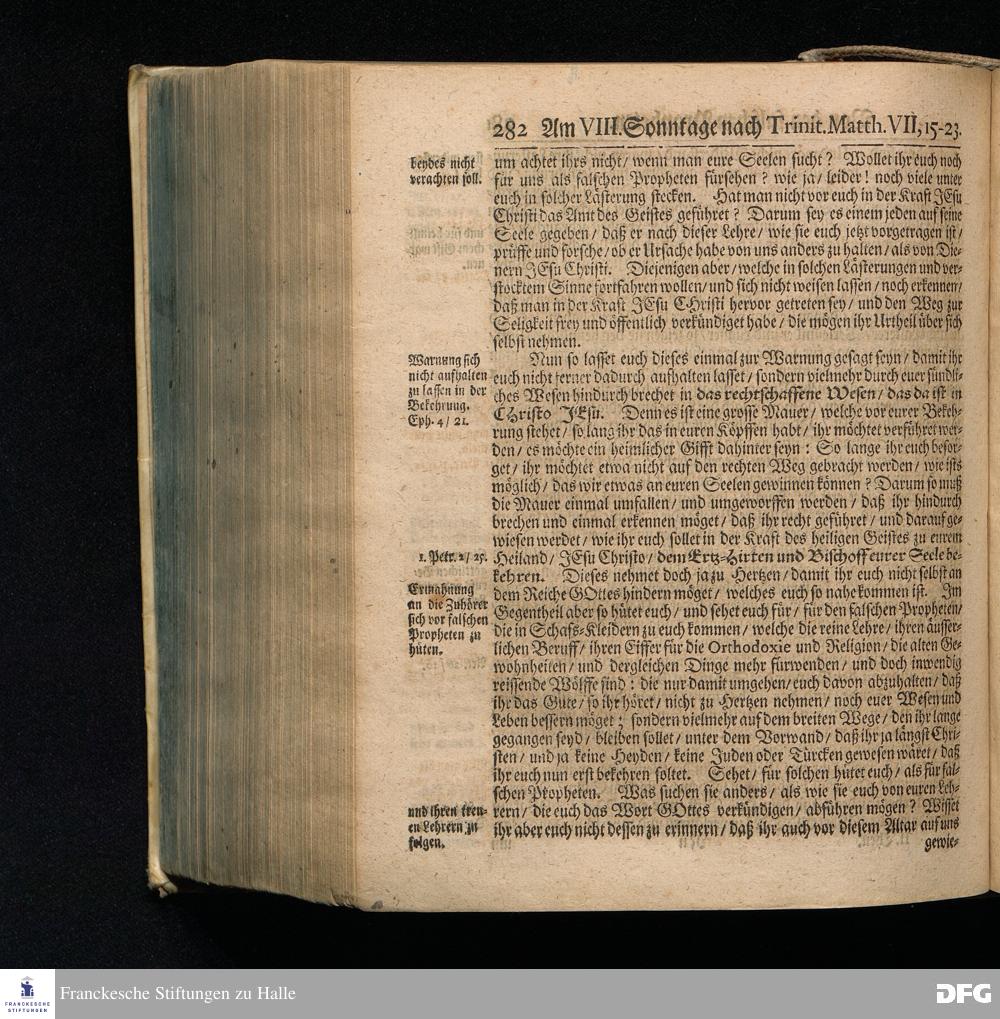 282 Am VIII. Sonntage nach Trinit. Matth. VII, 15-23.
beydes nicht
verachten soll.
um achtet ihrs nicht/ wenn man eure Seelen sucht? Wollet ihr euch noch
für uns als falschen Propheten fürsehen? wie ja/ leider! noch viele unter
euch in solcher Lästerung stecken. Hat man nicht vor euch in der Kraft JEsu
Christi das Amt des Geistes geführet? Darum sey es einem jeden auf seine
Seele gegeben/ daß er nach dieser Lehre/ wie sie euch jetzt vorgetragen ist/
prüffe und forsche/ ob er Ursache habe von uns anders zu halten/ als von Die-
nern JEsu Christi. Diejenigen aber/ welche in solchen Lästerungen und ver-
stocktem Sinne fortfahren wollen/ und sich nicht weisen lassen/ noch erkennen/
daß man in der Kraft JEsu CHristi hervor getreten sey/ und den Weg zur
Seligkeit frey und öffentlich verkündiget habe/ die mögen ihr Urtheil über sich
selbst nehmen.
Warnung sich
nicht aufhalten
zu lassen in der
Bekehrung.
Eph. 4/ 21.
Nun so lasset euch dieses einmal zur Warnung gesagt seyn/ damit ihr
euch nicht ferner dadurch aufhalten lasset/ sondern vielmehr durch euer sündli-
ches Wesen hindurch brechet in das rechtschaffene Wesen/ das da ist in
CHristo JEsu. Denn es ist eine grosse Mauer/ welche vor eurer Bekeh-
rung stehet/ so lang ihr das in euren Köpffen habt/ ihr möchtet verführet wer-
den/ es möchte ein heimlicher Gifft dahinter seyn: So lange ihr euch besor-
get/ ihr möchtet etwa nicht auf den rechten Weg gebracht werden/ wie ists
möglich/ das wir etwas an euren Seelen gewinnen können? Darum so muß
die Mauer einmal umfallen/ und umgeworffen werden/ daß ihr hindurch
brechen und einmal erkennen möget/ daß ihr recht geführet/ und darauf ge-
wiesen werdet/ wie ihr euch sollet in der Kraft des heiligen Geistes zu eurem
1. Petr. 2/ 25.
Heiland/ JEsu Christo/ dem Ertz-Hirten und Bischoff eurer Seele be-
kehren. Dieses nehmet doch ja zu Hertzen/ damit ihr euch nicht selbst an
Ermahnung
an die Zuhörer
sich vor falschen
Propheten zu
hüten.
dem Reiche GOttes hindern möget/ welches euch so nahe kommen ist. Im
Gegentheil aber so hütet euch/ und sehet euch für/ für den falschen Propheten/
die in Schafs-Kleidern zu euch kommen/ welche die reine Lehre/ ihren äusser-
lichen Beruff/ ihren Eiffer für die Orthodoxie und Religion/ die alten Ge-
wohnheiten/ und dergleichen Dinge mehr fürwenden/ und doch inwendig
reissende Wölffe sind: die nur damit umgehen/ euch davon abzuhalten/ daß
ihr das Gute/ so ihr höret/ nicht zu Hertzen nehmen/ noch euer Wesen und
Leben bessern möget; sondern vielmehr auf dem breiten Wege/ den ihr lange
gegangen seyd/ bleiben sollet/ unter dem Vorwand/ daß ihr ja längst Chri-
sten/ und ja keine Heyden/ keine Juden oder Türcken gewesen wäret/ daß
ihr euch nun erst bekehren soltet. Sehet/ für solchen hütet euch/ als für fal-
schen Propheten. Was suchen sie anders/ als wie sie euch von euren Leh-
und ihren treu-
en Lehrern zu
folgen.
rern/ die euch das Wort GOttes verkündigen/ abführen mögen? Wisset
ihr aber euch nicht dessen zu erinnern/ daß ihr auch vor diesem Altar auf uns
gewie-
FRANCKESCHE
STIFTUNGEN
Franckesche Stiftungen zu Halle
DFG